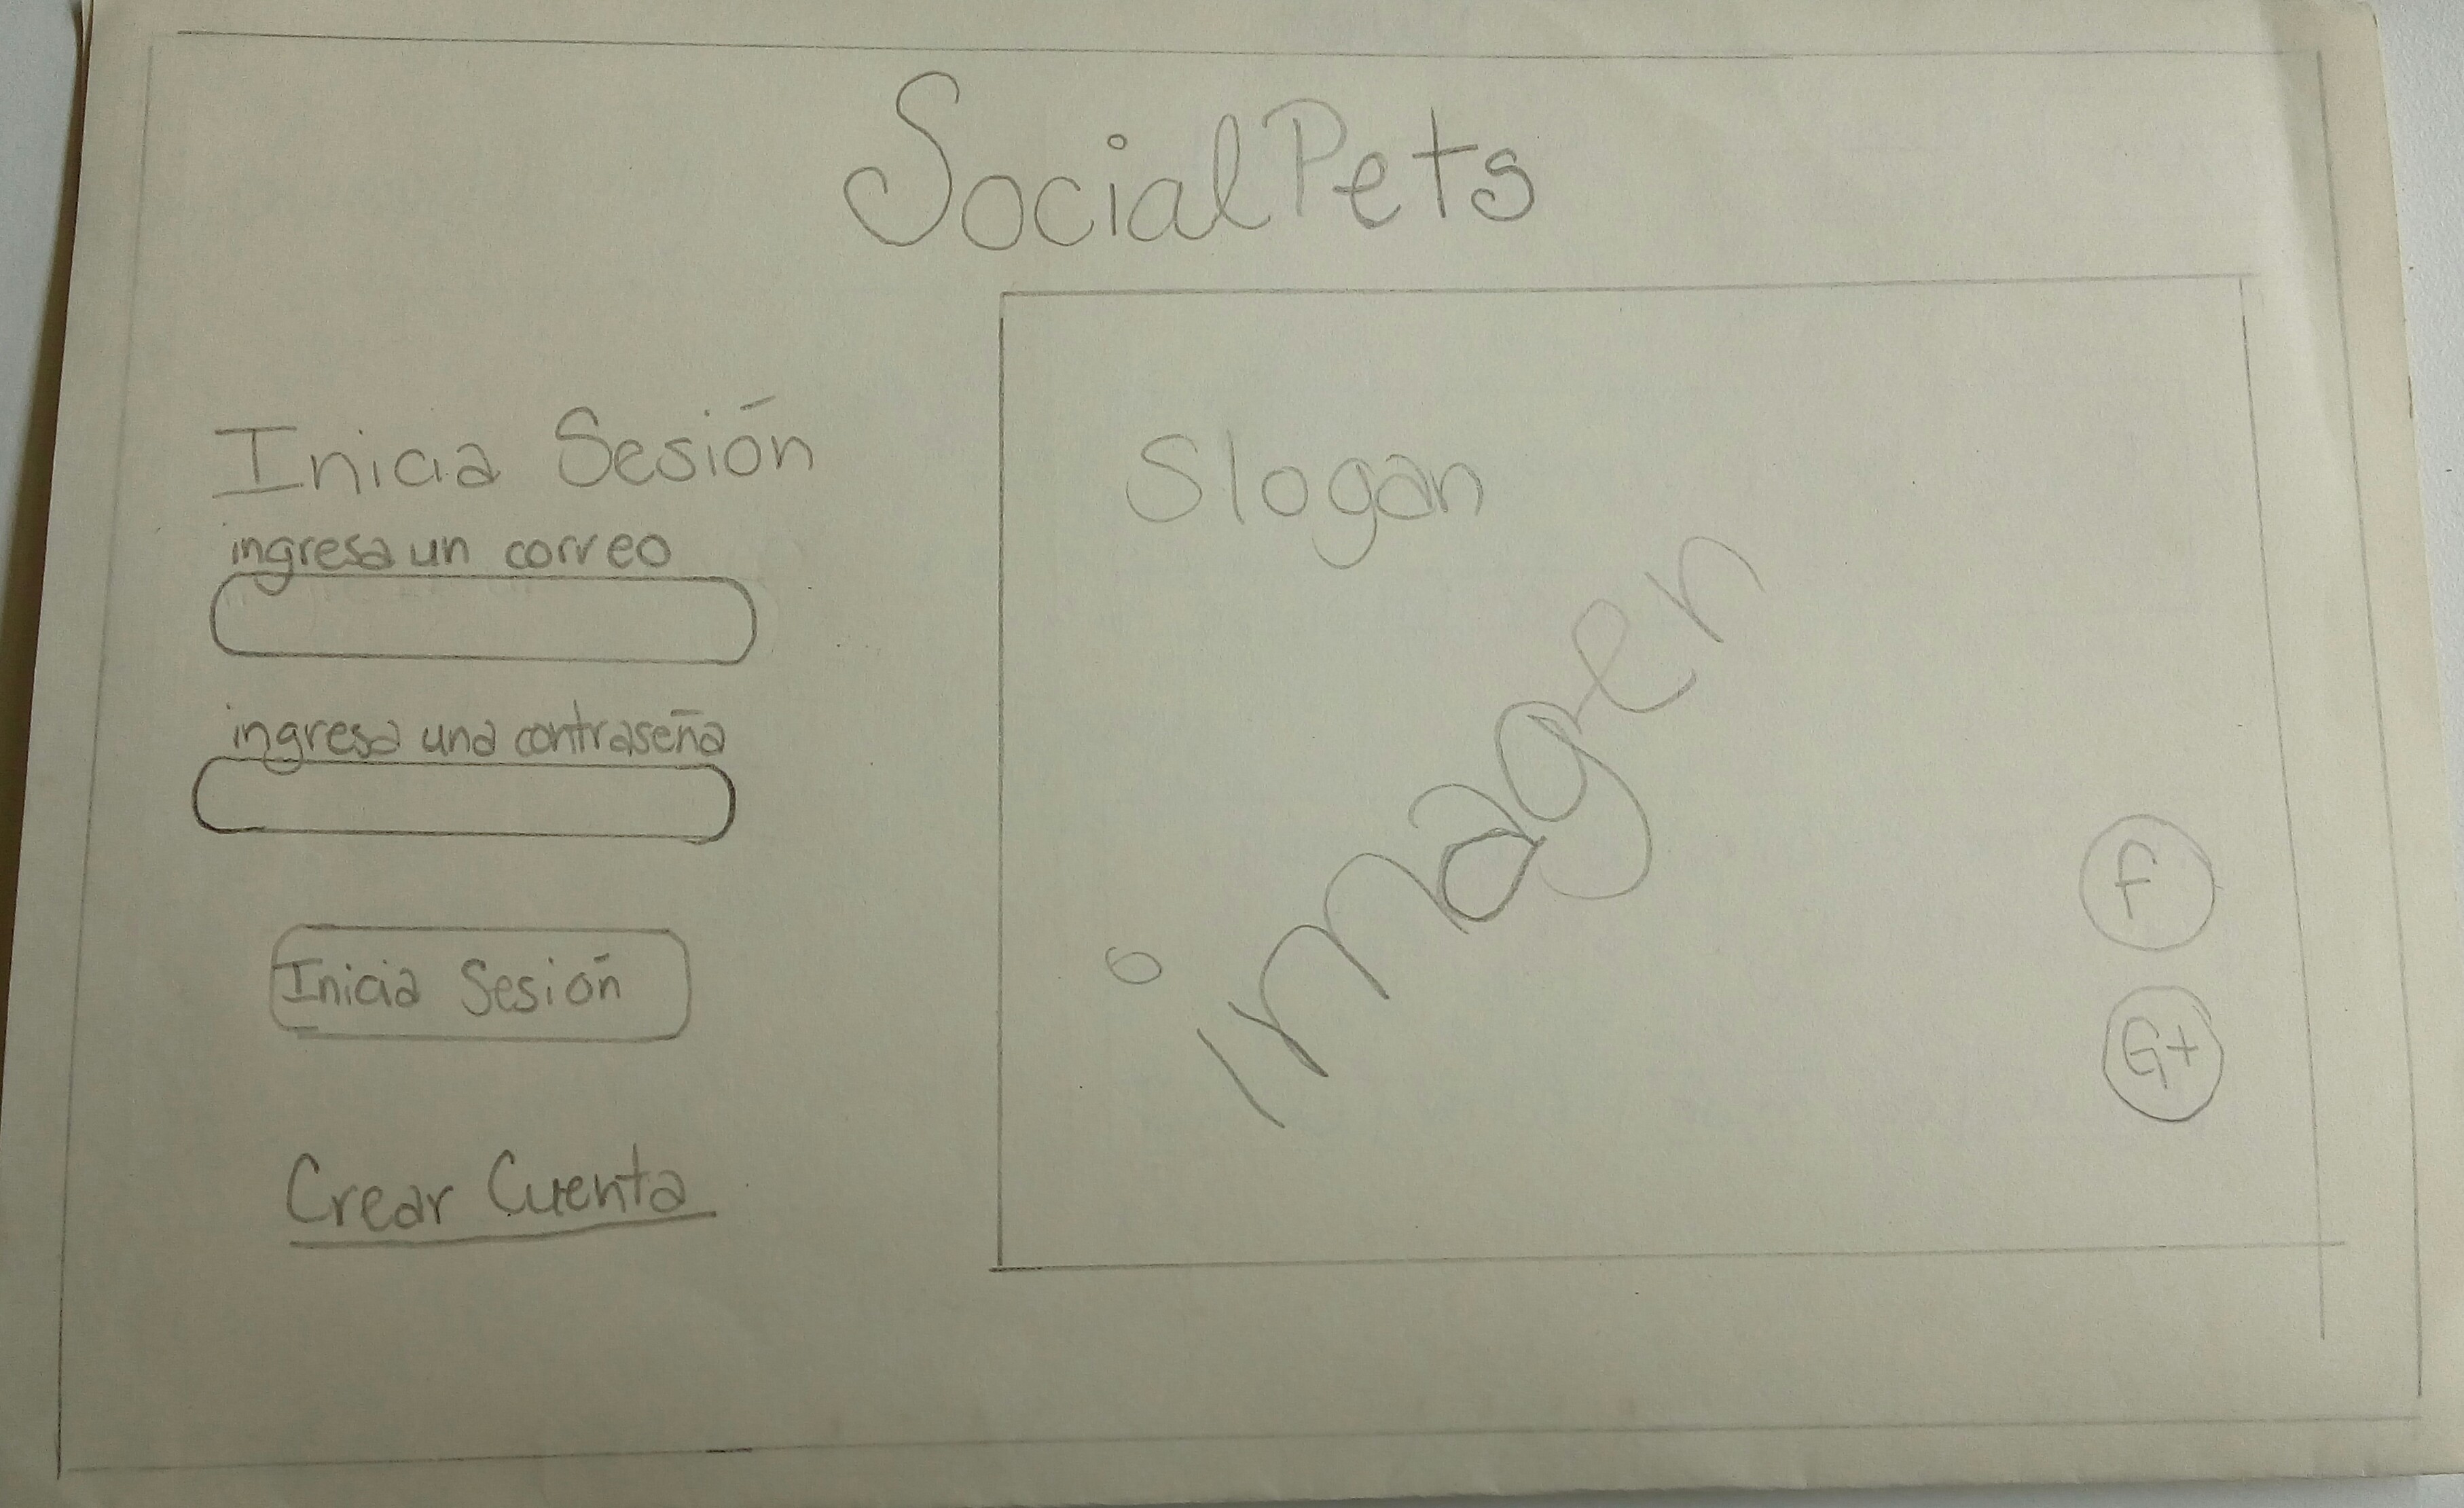 SocialPets
Inicia Sesión
ingresa un correo
ingresa una contraseña
Inicia Sesión
Crear Cuenta
Slogan
imagen
F
G+